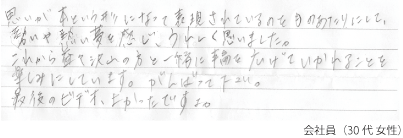 思いが本というカタチになって表現されているのをまのあたりにして、
勢いや熱い夢を感じ、うれしく思いました。
これから益々沢山の方と一緒に輪を広げていかれることを
楽しみにしています。がんばって下さい。
最後のビデオ、よかったですよ。
会社員（30代女性）